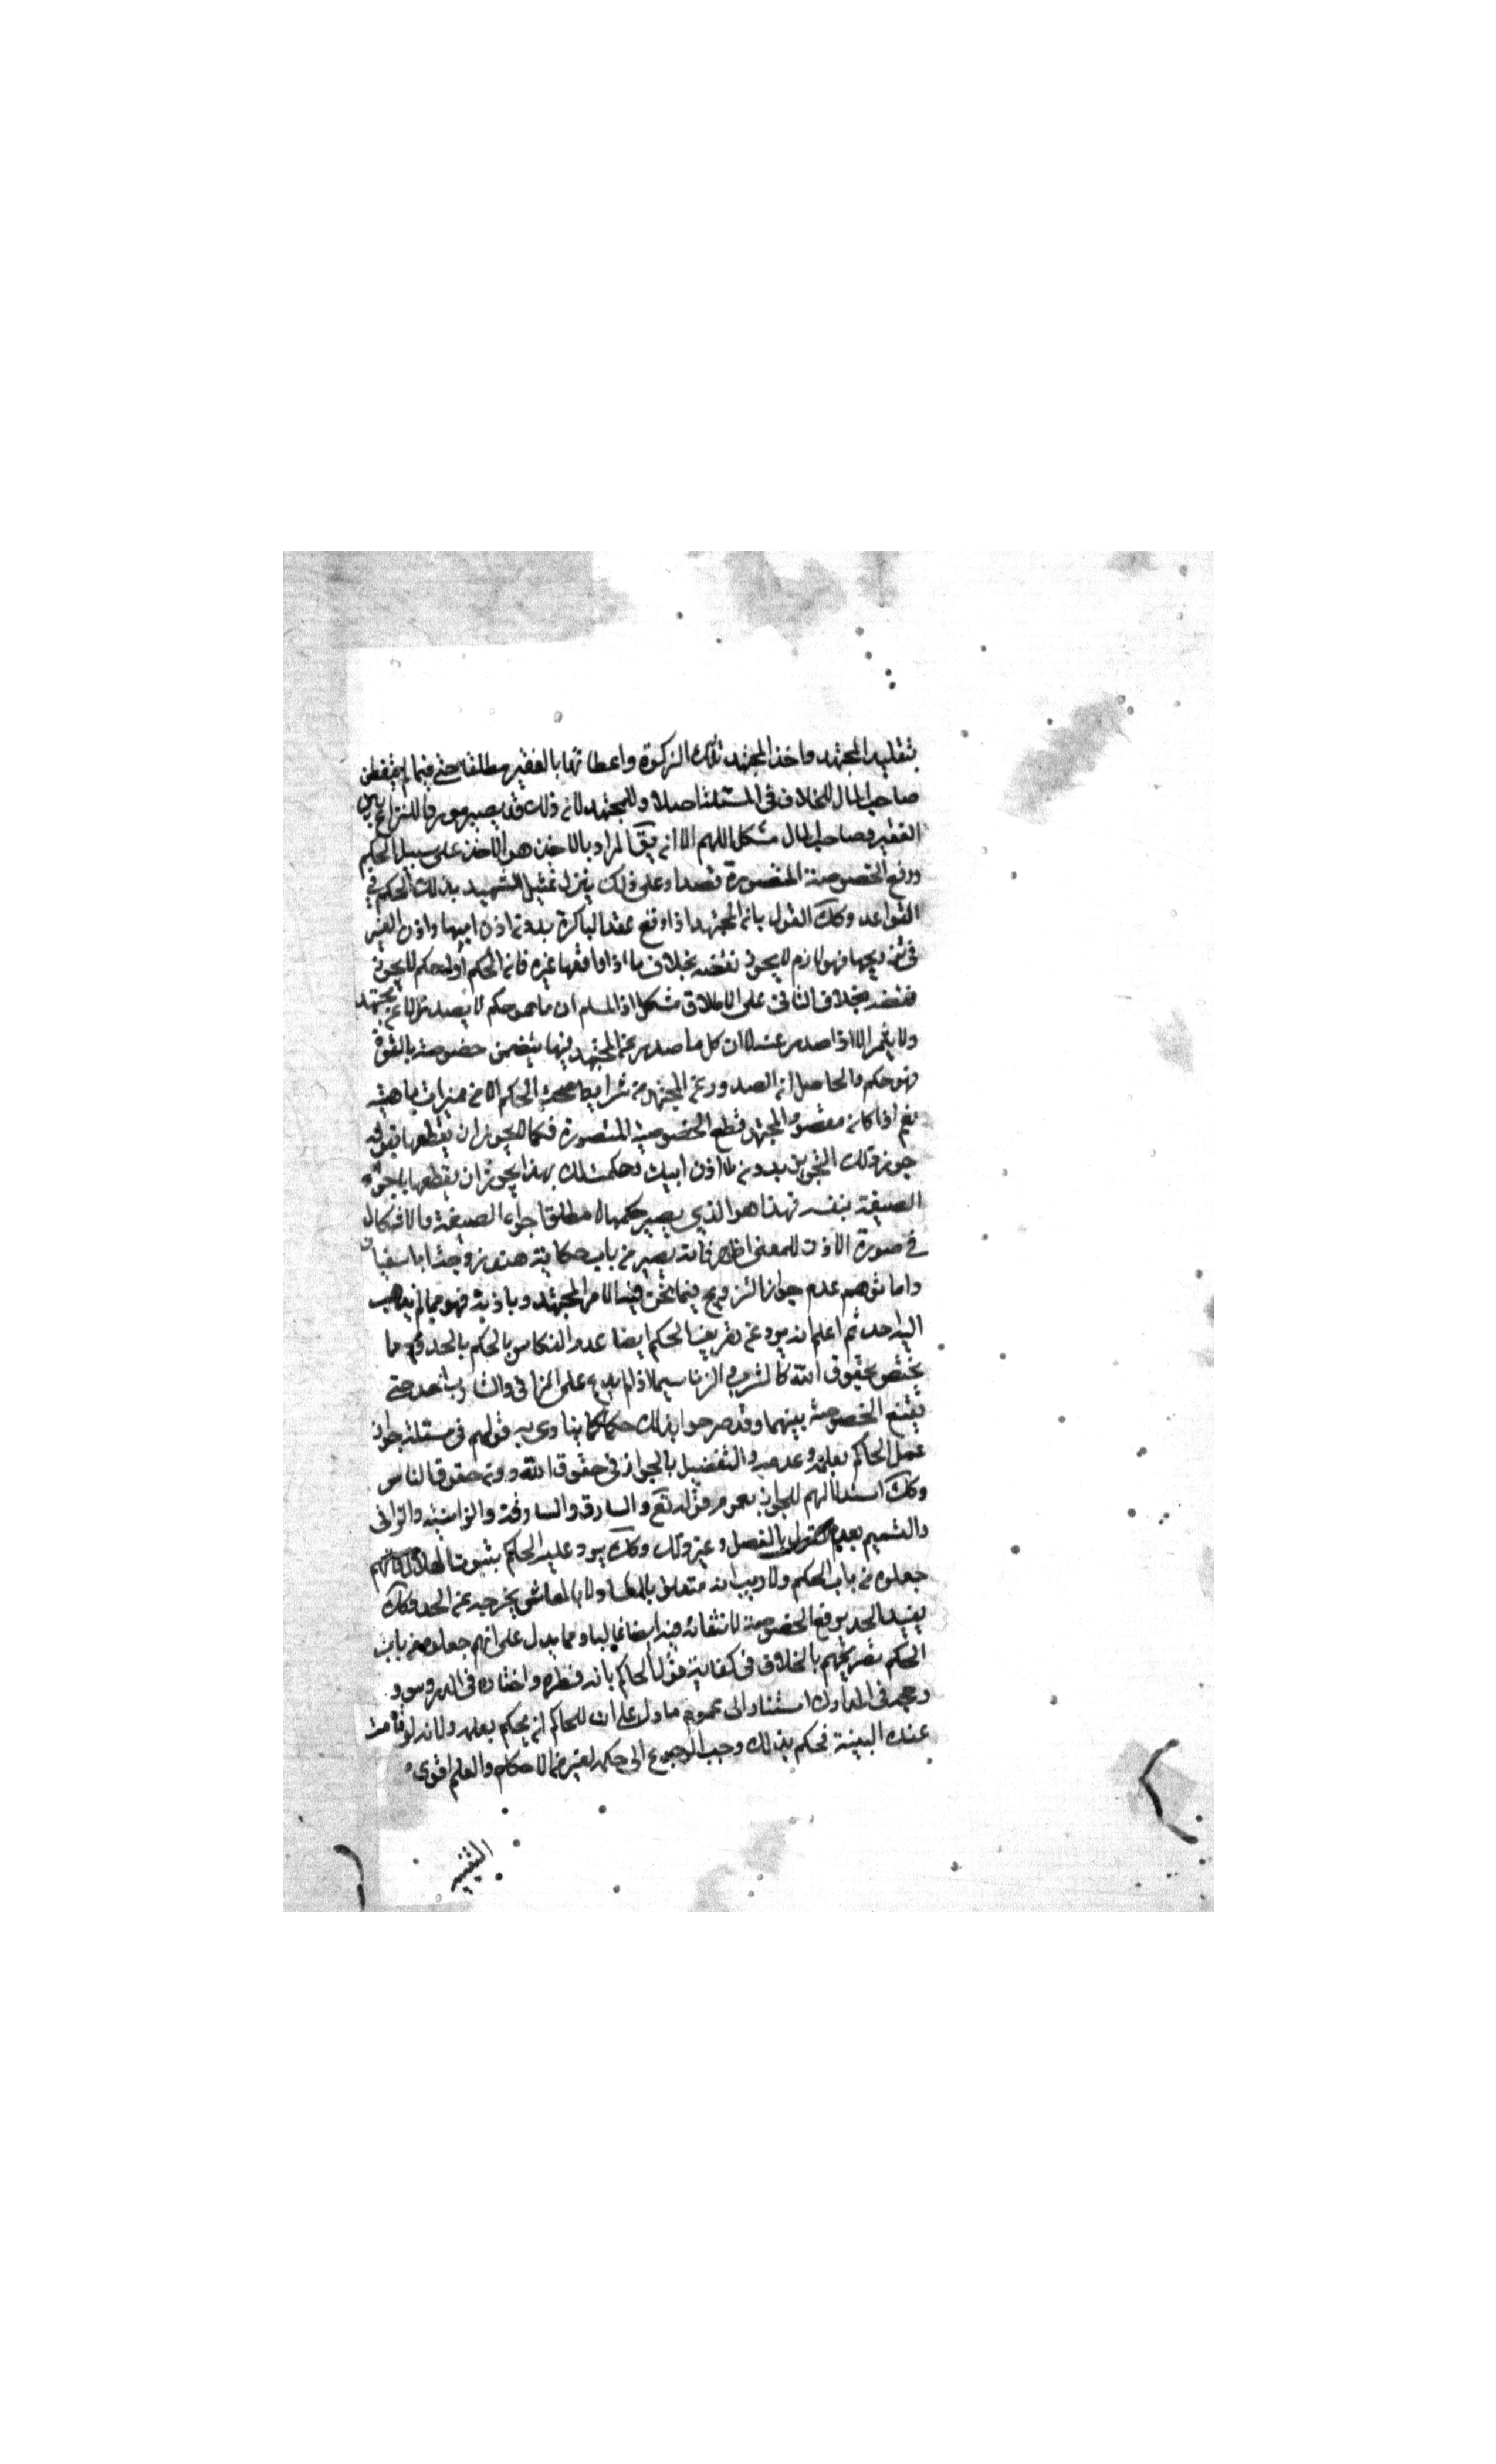 بتقليد المجتهد واخذ المجتهد تلك الزكوة واعطائها بالفقير مطلقا حتى فيما لم يتفطن
صاحب المال للخلاف في المسئلة اصلا ولا المجتهد لان ذلك قد يصير موردا للنزاع بين
الفقير وصاحب المال مشكل اللهم الا ان يق المراد بالاخذ هو الاخذ على سبيل الحكم
ورفع الخصومة المتصورة قصدا وعلى ذلك ينزل تمثيل الشهيد بذلك الحكم في
القواعد وكك القول بان المجتهد اذا اوقع عقد الباكرة بدون اذن ابيها واذن الغير
في تزويجها فهو لازم لا يجوز نقضه بخلاف ما اذا اوقعها غيره فان الحكم اولا حكم لا يجوز
نقضه بخلاف الثاني على الاطلاق مشكل اذ المسلم ان ما هو حكم لا يصدر الا عن مجتهد
ولا يثمر الا اذا صدر عنه لا ان كل ما صدر عن المجتهد فيما يتضمن خصومة بالقوة
فهو حكم والحاصل ان الصدور عن المجتهد من شرايط صحة الحكم لا من مميزات ماهيته
نعم اذا كان مقصود المجتهد قطع الخصومة المتصورة فكما يجوز ان يقطعها بقوله
جوزت لك التزويج بدون اذن ابيك وحكمت لك بهذا يجوز ان يقطعها باجراء
الصيغة بنفسه فهذا هو الذي يصير حكما لا مطلق اجراء الصيغة والاشكال
في صورة الاذن للمعنى اظهر فانه يصير من باب حكاية هند زوجة ابا سفيان
واما توهم عدم جواز التزويج فيما نحن فيه الا من المجتهد وباذنه فهو مما لم يذهب
اليه احد ثم اعلم انه يرد على تعريف الحكم ايضا عدم انعكاسه بالحكم بالحدود مما
يختص بحقوق الله كالشرب والزنا سيما اذا لم يدع على الزاني والشارب احد حتى
تقع الخصومة بينهما وقد صرحوا بذلك حكما كما ينادى به قولهم في مسئلة جواز
عمل الحاكم بعلمه وعدمه والتفصيل بالجواز في حقوق الله دون حقوق الناس
وكك استدلالهم للجواز بعموم قوله تع والسارق والسارقة والزانية والزاني
والتتميم بعدم القول بالفصل وغير ذلك وكك يرد عليه الحكم بثبوت الهلال فانهم
جعلوه من باب الحكم ولا ريب انه متعلق بالمعاد لا بالمعاش يخرجه عن الحد وكك
يفيد الحد برفع الخصومة لانتفائه فيه ايضا غالبا ومما يدل على انهم جعلوه من باب
الحكم تصريحهم بالخلاف في كفاية قول الحاكم بانه فطره واختاره في الدروس و
رجحه في المدارك استنادا الى عموم ما دل على ان للحاكم ان يحكم بعلمه ولانه لو قامت
عنده البينة فحكم بذلك وجب الرجوع الى حكمه لغيره من الاحكام والعلم اقوى